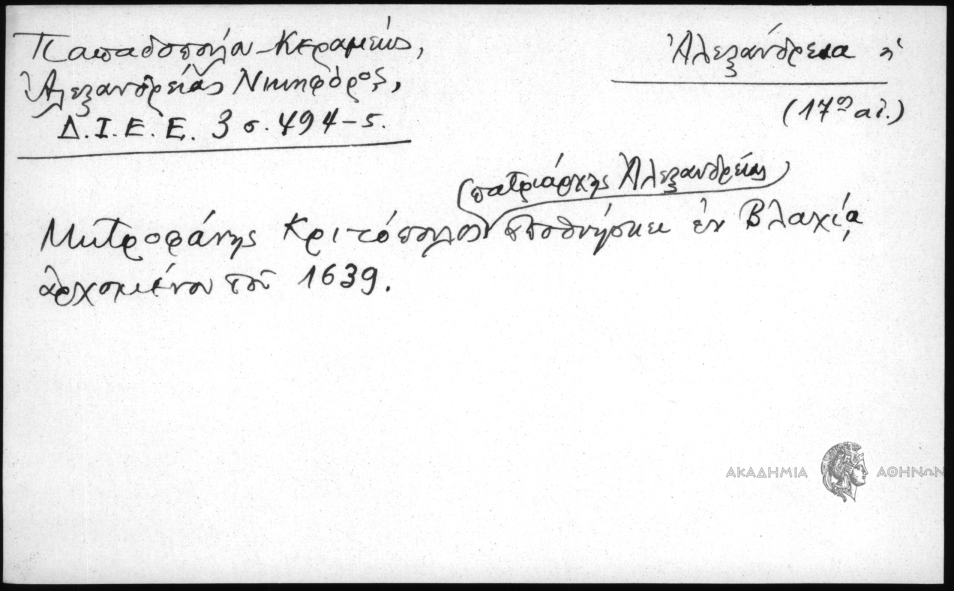 Παπαδοπούλου-Κεραμεύς,
Ἀλεξανδρείας Νικηφόρος,
Δ.Ι.Ε.Ε. 3 σ. 494-5.
Ἀλεξάνδρεια ἡ
(17ος αἰ.)
(πατριάρχης Ἀλεξανδρείας)
Μητροφάνης Κριτόπουλος ἀποθνήσκει ἐν Βλαχίᾳ,
ἀρχομένου τοῦ 1639.
ΑΚΑΔΗΜΙΑ ΑΘΗΝΩΝ